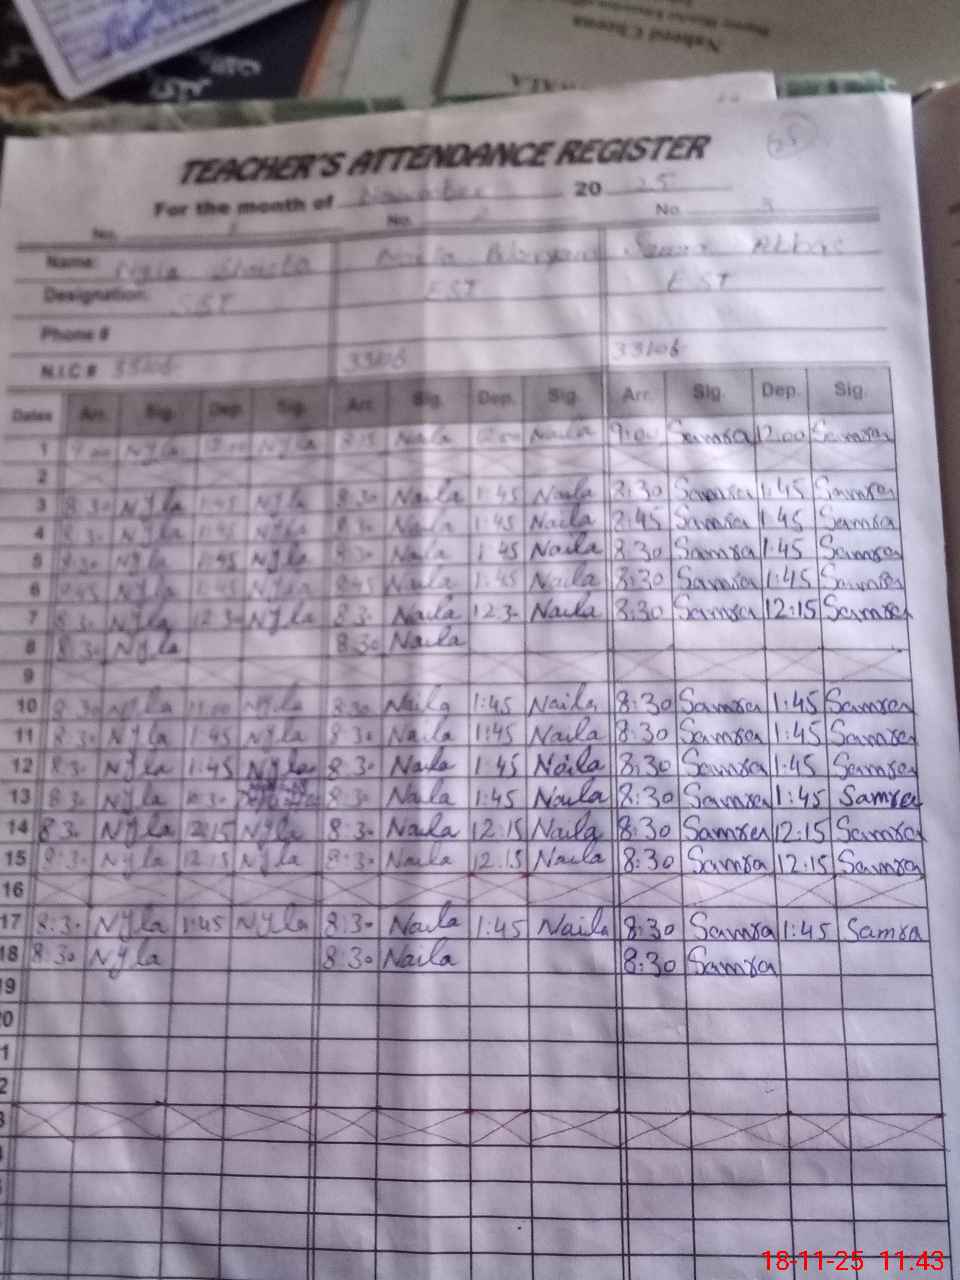 Naheed Cheema
TEACHER'S ATTENDANCE REGISTER
25
For the month of November 2025
No. 1 No. 2 No. 3
Name: Nyla Naila Abbas
Designation: SST EST EST
Phone #
N.I.C # 33106- 33106 33106-
Dates Arr. Sig. Dep. Sig. Arr. Sig. Dep. Sig. Arr. Sig. Dep. Sig.
1 9:00 Nyla 12:00 Nyla Naila 12:00 Naila 9:00 Samra 12:00 Samra
2
3 8:30 Nyla 1:45 Nyla 8:30 Naila 1:45 Naila 8:30 Samra 1:45 Samra
4 8:30 Nyla 1:45 Nyla 8:30 Naila 1:45 Naila 8:45 Samra 1:45 Samra
5 8:30 Nyla 1:45 Nyla 8:30 Naila 1:45 Naila 8:30 Samra 1:45 Samra
6 Nyla 1:45 Nyla 8:45 Naila 1:45 Naila 8:30 Samra 1:45 Samra
7 8:30 Nyla 12:30 Nyla 8:30 Naila 12:30 Naila 8:30 Samra 12:15 Samra
8 8:30 Nyla 8:30 Naila
9
10 8:30 Nyla Nyla 8:30 Naila 1:45 Naila 8:30 Samra 1:45 Samra
11 8:30 Nyla 1:45 Nyla 8:30 Naila 1:45 Naila 8:30 Samra 1:45 Samra
12 8:30 Nyla 1:45 Nyla 8:30 Naila 1:45 Naila 8:30 Samra 1:45 Samra
13 8:30 Nyla 8:30 Naila 1:45 Naila 8:30 Samra 1:45 Samra
14 8:30 Nyla 12:15 Nyla 8:30 Naila 12:15 Naila 8:30 Samra 12:15 Samra
15 8:30 Nyla 12:15 Nyla 8:30 Naila 12:15 Naila 8:30 Samra 12:15 Samra
16
17 8:30 Nyla 1:45 Nyla 8:30 Naila 1:45 Naila 8:30 Samra 1:45 Samra
18 8:30 Nyla 8:30 Naila 8:30 Samra
9
0
1
2
3
18-11-25 11.43